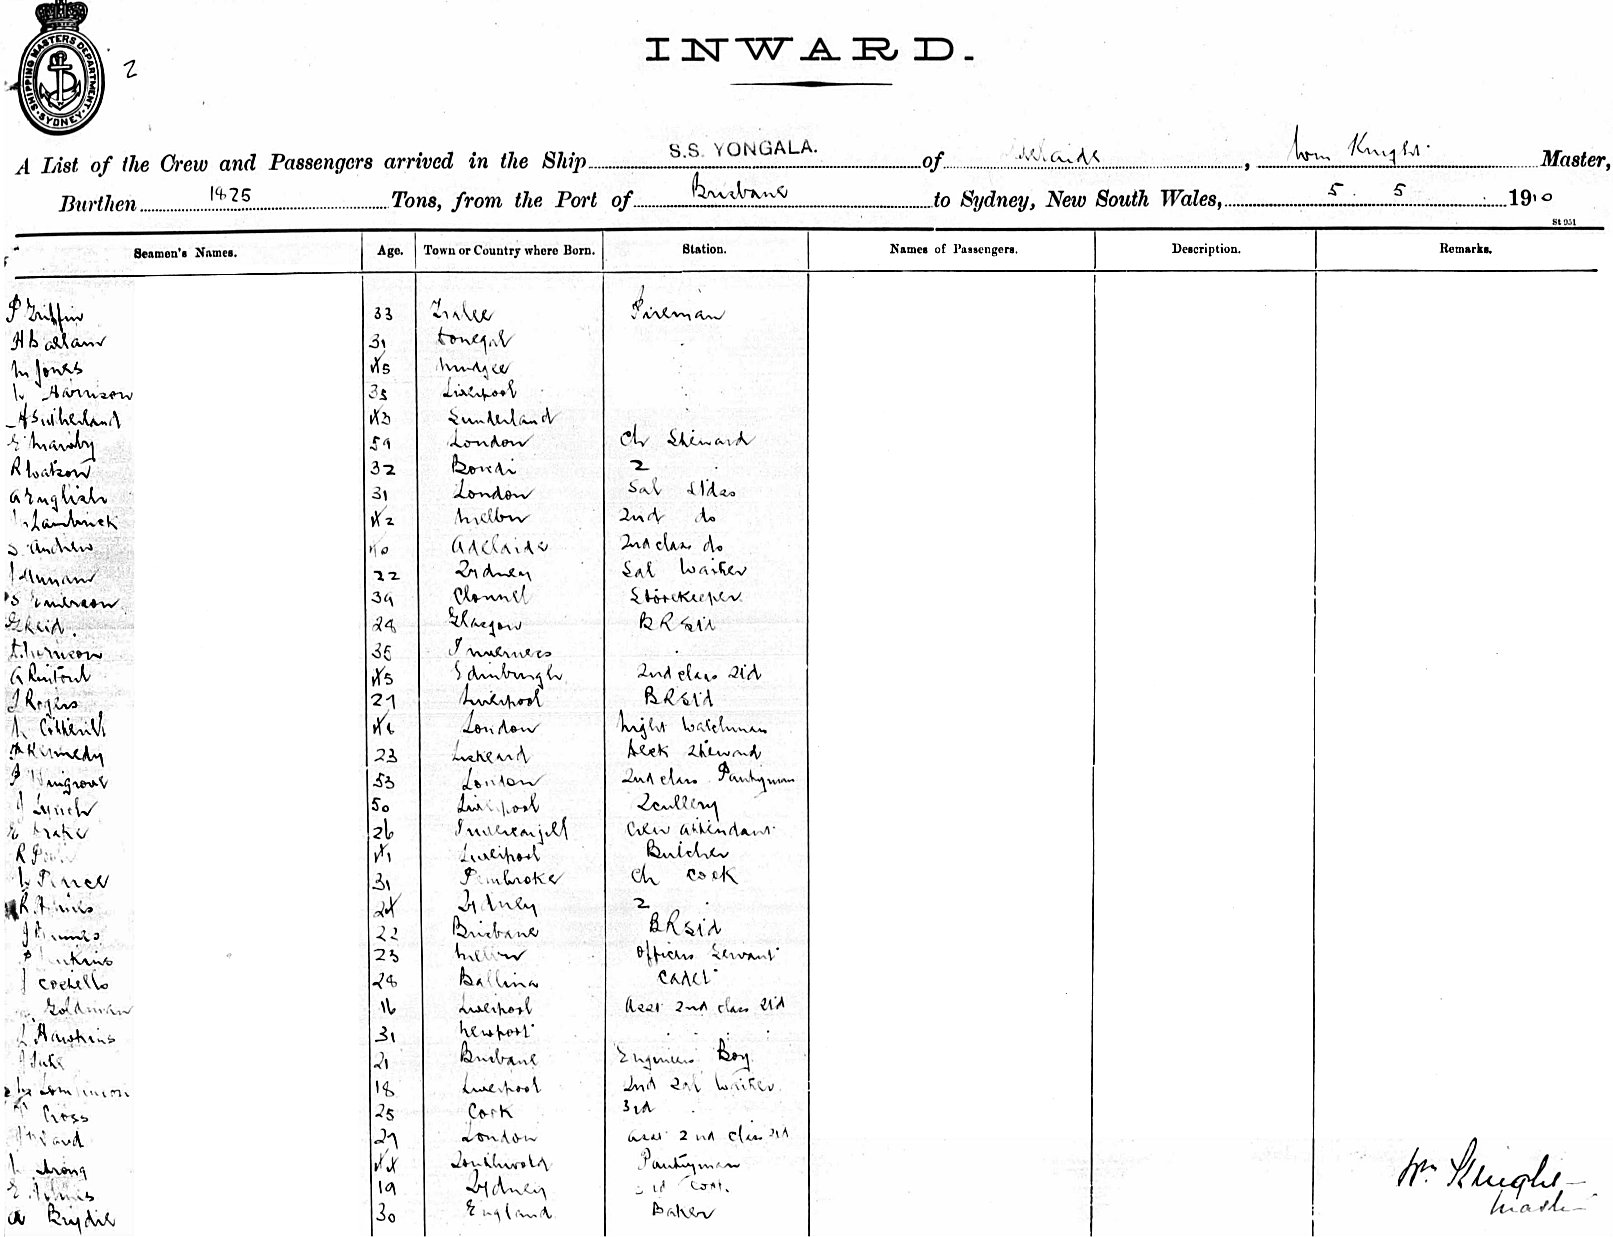 SHIPPING MASTERS DEPARTMENT
SYDNEY
2
INWARD.
A List of the Crew and Passengers arrived in the Ship S.S. YONGALA. of Adelaide, Wm Knight Master,
Burthen 1825 Tons, from the Port of Brisbane to Sydney, New South Wales, 5. 5. 1910
St 951
Seamen's Names. Age. Town or Country where Born. Station. Names of Passengers. Description. Remarks.
P Griffin 33 Tralee Fireman
H 31 Donegal
M Jones 45 Mudgee
Harrison 35 Liverpool
A Sutherland 43 Sunderland
E 59 London Ch Steward
R Watson 32 Bondi 2
A English 31 London Sal Stdss
42 Melbn 2nd do
Andrew 40 Adelaide 2nd class do
22 Sydney Sal Waiter
Emerson 39 Clonmel Storekeeper
G Reid. 28 Glasgow B R Std
35 Inverness
A Rintoul 45 Edinburgh 2nd class Std
J Rogers 27 Liverpool B R Std
Cotterill 46 London Night Watchman
Kennedy 23 Liskeard Deck Steward
P Wingrove 53 London 2nd class Pantryman
J Lynch 50 Liverpool Scullery
E Drake 26 Invercargill Crew Attendant
R 41 Liverpool Butcher
W Pierce 31 Pembroke Ch Cook
R. 24 Sydney 2
J 22 Brisbane B R Std
23 Melbn Officers Servant
J Costello 28 Ballina Cadet
Goldman 16 Liverpool Asst 2nd class Std
Hawkins 31 Newport
J 21 Brisbane Engineers Boy
18 Liverpool 2nd Sal Waiter
Cross 25 Cork 3rd
27 London Asst 2nd class Std
44 Southwold Pantryman
E 19 Sydney 3rd Cook
A Brydie 30 England Baker
Wm Knight
Master